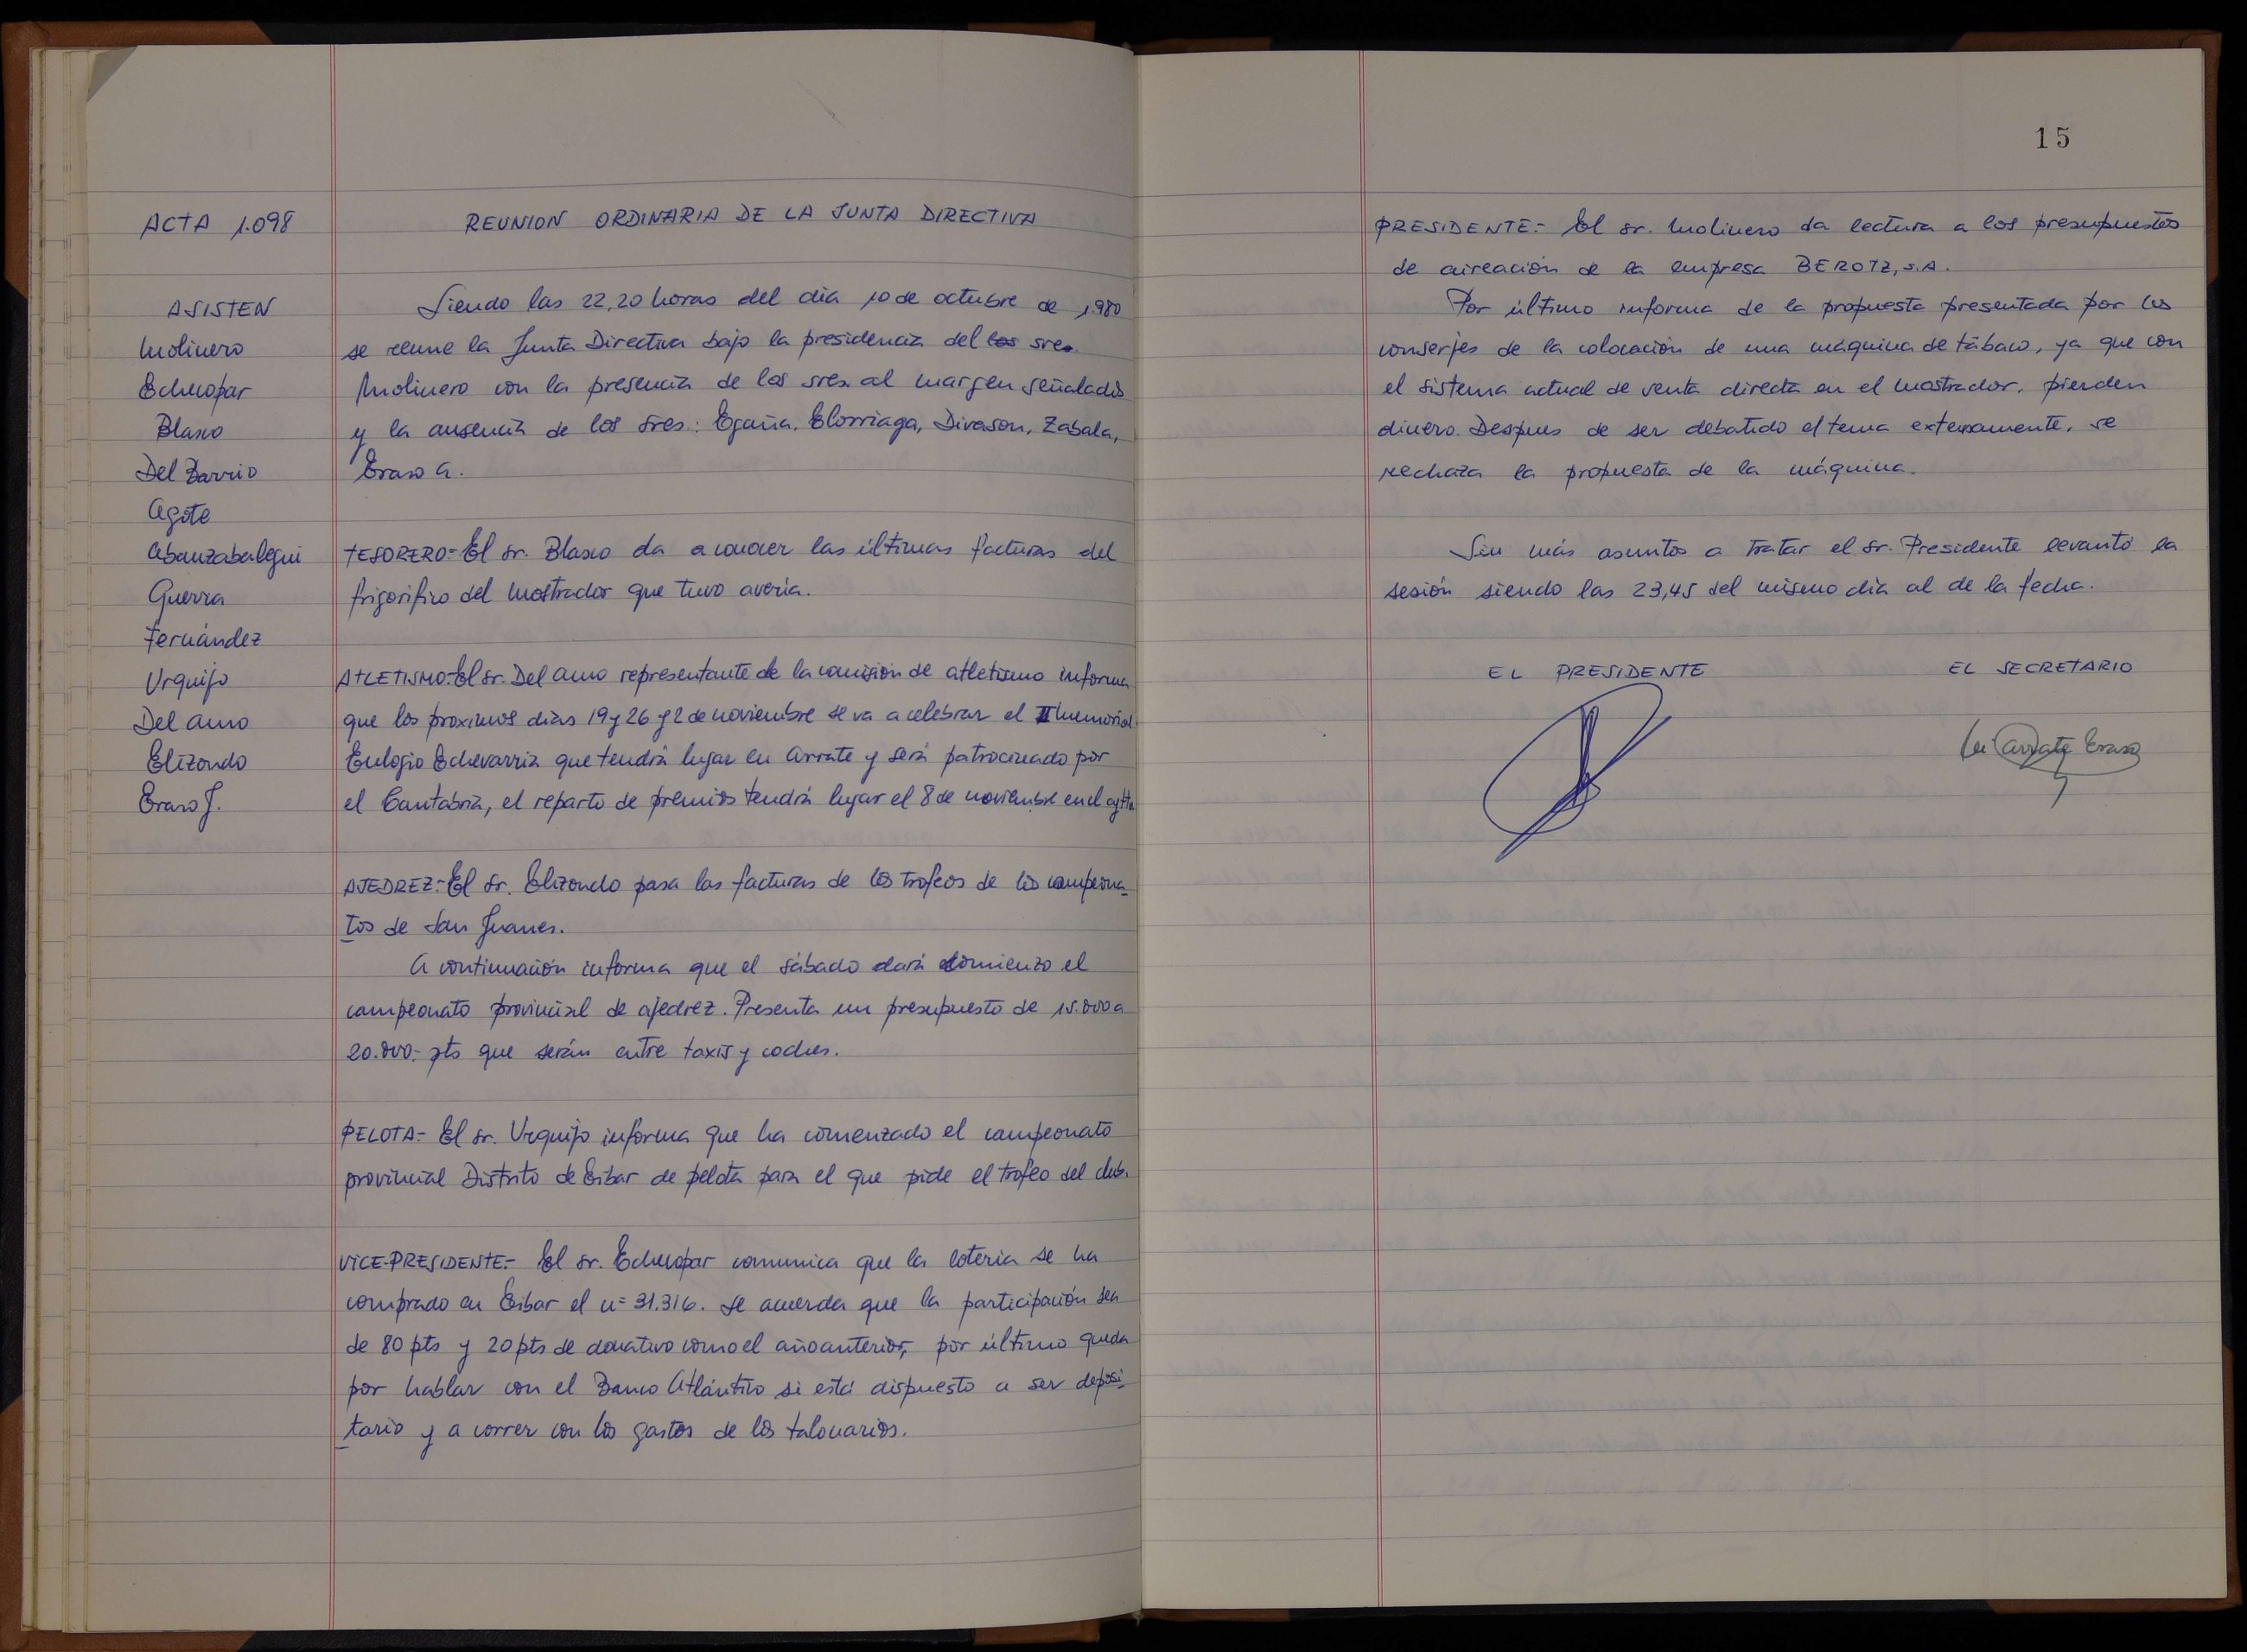 ACTA 1.098
REUNION ORDINARIA DE LA JUNTA DIRECTIVA
ASISTEN
Molinero
Echecopar
Blasco
Del Barrio
Agote
Abanzabalegui
Guerra
Fernández
Urquijo
Del Amo
Elizondo
Eraso J.
Siendo las 22,20 horas del día 10 de octubre de 1.980
se reune la Junta Directiva bajo la presidencia del los sres.
Molinero con la presencia de los sres. al margen señalados
y la ausencia de los sres.: Egaña, Elorriaga, Divason, Zabala,
Eraso A.
TESORERO.- El sr. Blasco da a conocer las últimas facturas del
frigorifico del mostrador que tuvo avería.
ATLETISMO.- El sr. Del Amo representante de la comisión de atletismo informa
que los proximos días 19 y 26 y 2 de noviembre se va a celebrar el II memorial
Eulogio Echevarria que tendrá lugar en Arrate y será patrocinado por
el Cantabria, el reparto de premios tendrá lugar el 8 de noviembre en el aytto
AJEDREZ.- El sr. Elizondo pasa las facturas de los trofeos de los campeona-
tos de San Juanes.
A continuación informa que el sábado dará comienzo el
campeonato provincial de ajedrez. Presenta un presupuesto de 15.000 a
20.000.- pts que serán entre taxis y coches.
PELOTA.- El sr. Urquijo informa que ha comenzado el campeonato
provincial Distrito de Eibar de pelota para el que pide el trofeo del club.
VICE-PRESIDENTE.- El sr. Echecopar comunica que la loteria se ha
comprado en Eibar el nº 31.316. Se acuerda que la participación sea
de 80 pts y 20 pts de donativo como el año anterior, por último queda
por hablar con el Banco Atlántico si está dispuesto a ser deposi-
tario y a correr con los gastos de los talonarios.
15
PRESIDENTE.- El sr. Molinero da lectura a los presupuestos
de aireación de la empresa BEROTZ, S.A.
Por último informa de la propuesta presentada por los
conserjes de la colocación de una máquina de tabaco, ya que con
el sistema actual de venta directa en el mostrador, pierden
dinero. Despues de ser debatido el tema extensamente, se
rechaza la propuesta de la máquina.
Sin más asuntos a tratar el sr. Presidente levantó la
sesión siendo las 23,45 del mismo día al de la fecha.
EL PRESIDENTE
EL SECRETARIO
Arrate Eraso